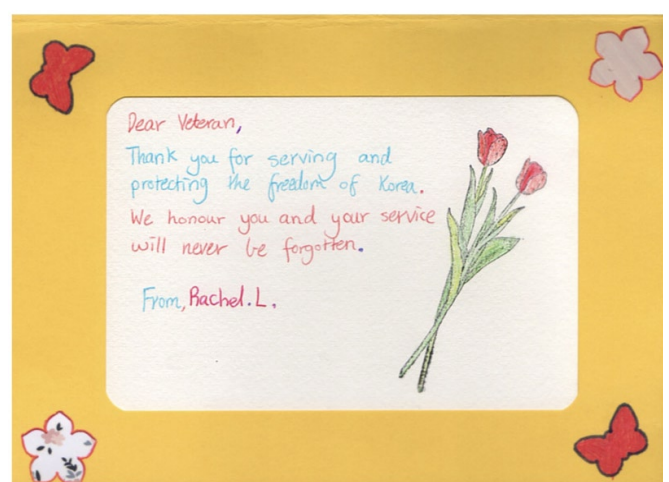 Dear Veteran,
Thank you for serving and
protecting the freedom of Korea.
We honour you and your service
will never be forgotten.
From, Rachel.L.